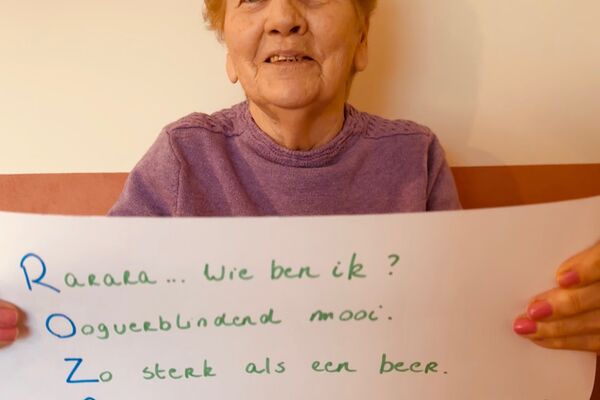 Rarara... Wie ben ik?
Oogverblindend mooi.
Zo sterk als een beer.